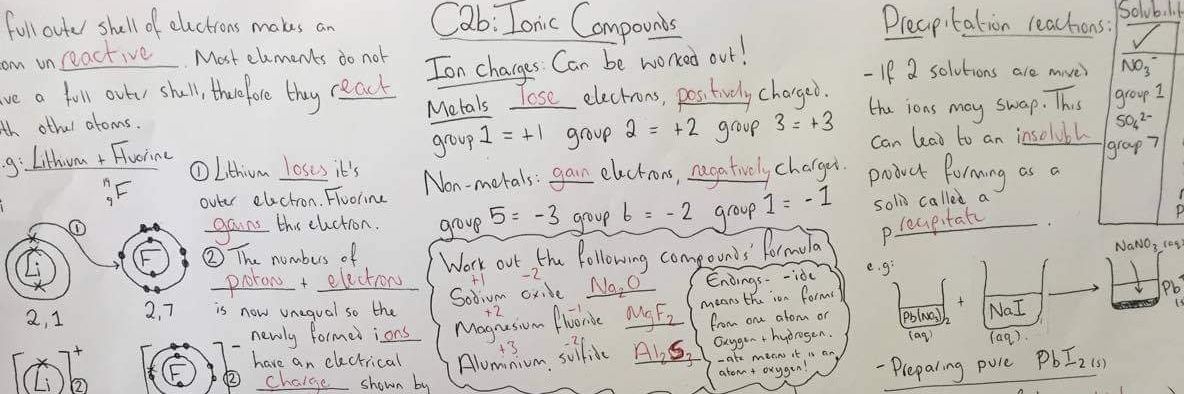 full outer shell of electrons makes an
om unreactive. Most elements do not
ve a full outer shell, therefore they react
th other atoms.
.g: Lithium + Fluorine
19
9 F
① Lithium loses it's
outer electron. Fluorine
gains this electron.
② The numbers of
protons + electrons
is now unequal so the
newly formed ions
have an electrical
charge shown by
①
Li
F
2,1
2,7
[Li]+
②
[F]-
②
C2b: Ionic Compounds
Ion charges: Can be worked out!
Metals lose electrons, positively charged.
group 1 = +1 group 2 = +2 group 3 = +3
Non-metals: gain electrons, negatively charged.
group 5 = -3 group 6 = -2 group 1 = -1
Work out the following compounds' formula
+1 -2
Sodium oxide Na2O
+2 -1
Magnesium fluoride MgF2
+3 -2
Aluminium sulfide Al2S3
Endings - -ide
means the ion forms
from one atom or
oxygen + hydrogen.
-ate means it is an
atom + oxygen!
Precipitation reactions:
- If 2 solutions are mixed
the ions may swap. This
can lead to an insoluble
product forming as a
solid called a
precipitate.
e.g:
Pb(NO3)2
(aq)
+
NaI
(aq).
NaNO3 (aq)
Pb
- Preparing pure PbI2(s)
Solubilit
✓
NO3-
group 1
SO4 2-
group 7